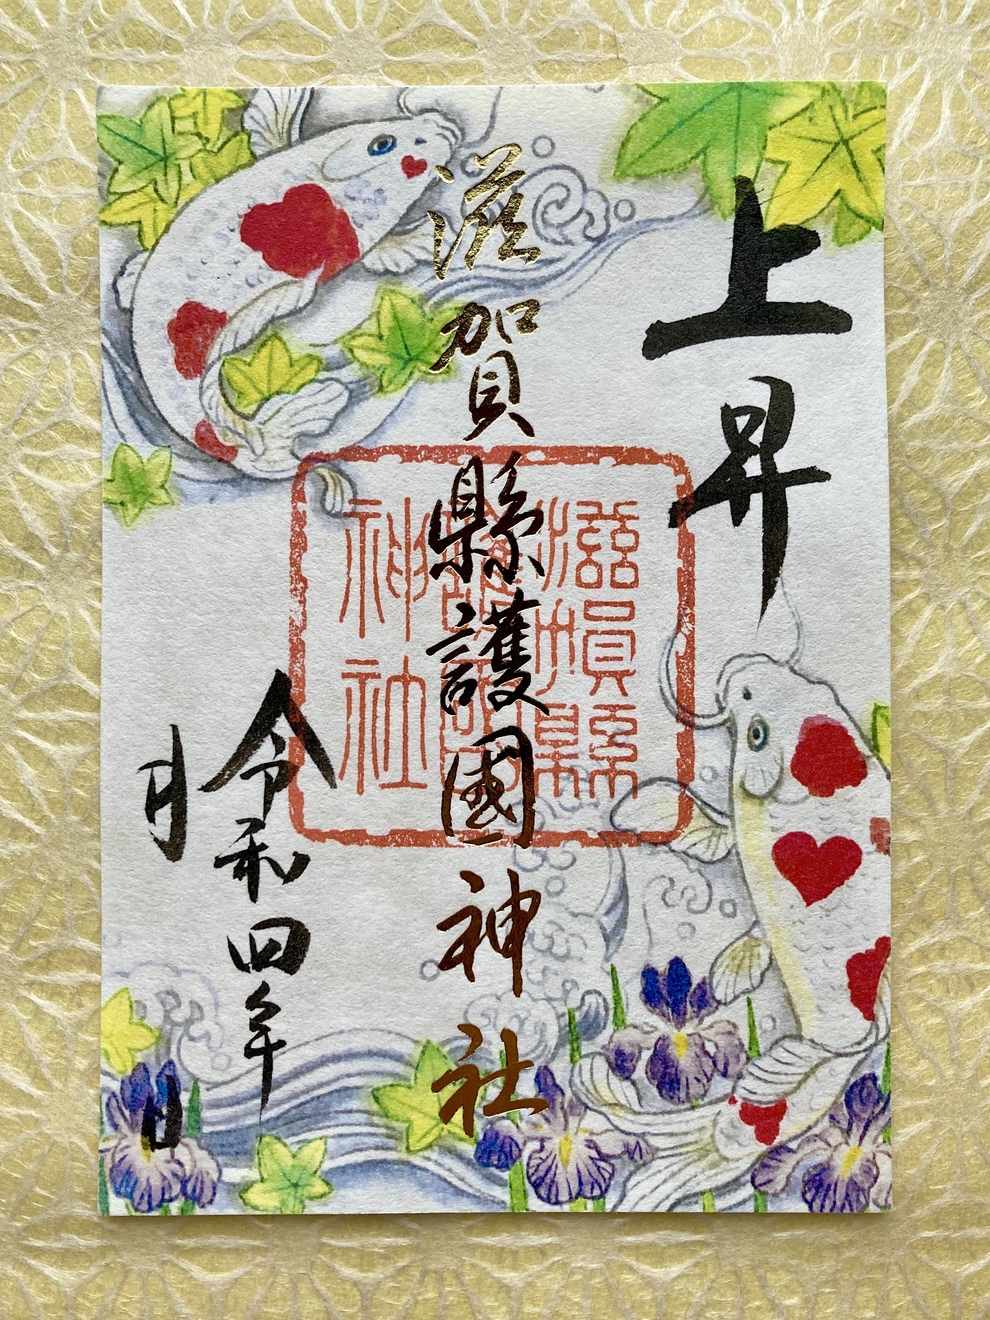 上昇
滋賀縣護國神社
滋賀縣
護國
神社
令和四年
月 日